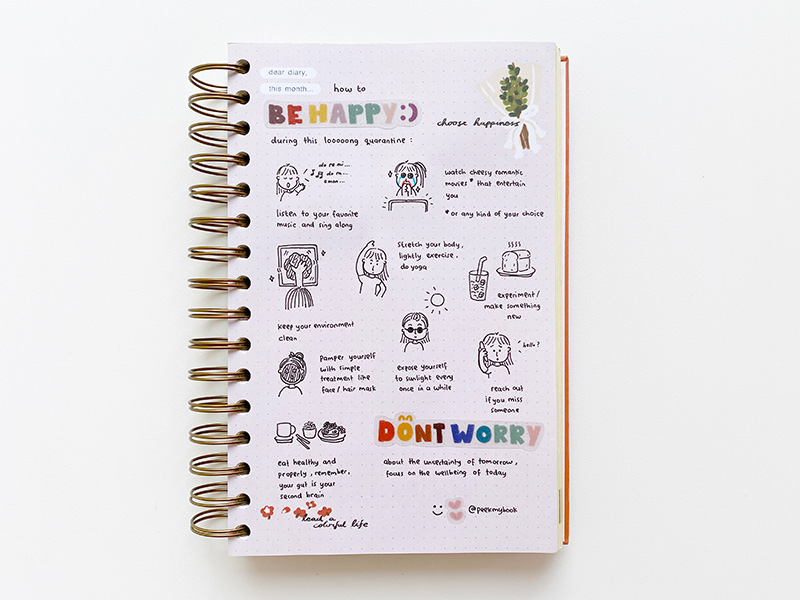 dear diary,
this month...
how to
BE HAPPY:)
choose happiness
during this looooong quarantine :
do re mi...
listen to your favorite
music and sing along
watch cheesy romantic
movies * that entertain
you
* or any kind of your choice
stretch your body,
lightly exercise,
do yoga
experiment/
make something
new
keep your environment
clean
Pamper yourself
with simple
treatment like
face/hair mask
expose yourself
to sunlight every
once in a while
hello?
reach out
if you miss
someone
DONT WORRY
about the uncertainty of tomorrow,
focus on the wellbeing of today
eat healthy and
properly, remember,
your gut is your
second brain
lead a
colorful life
@peekmybook